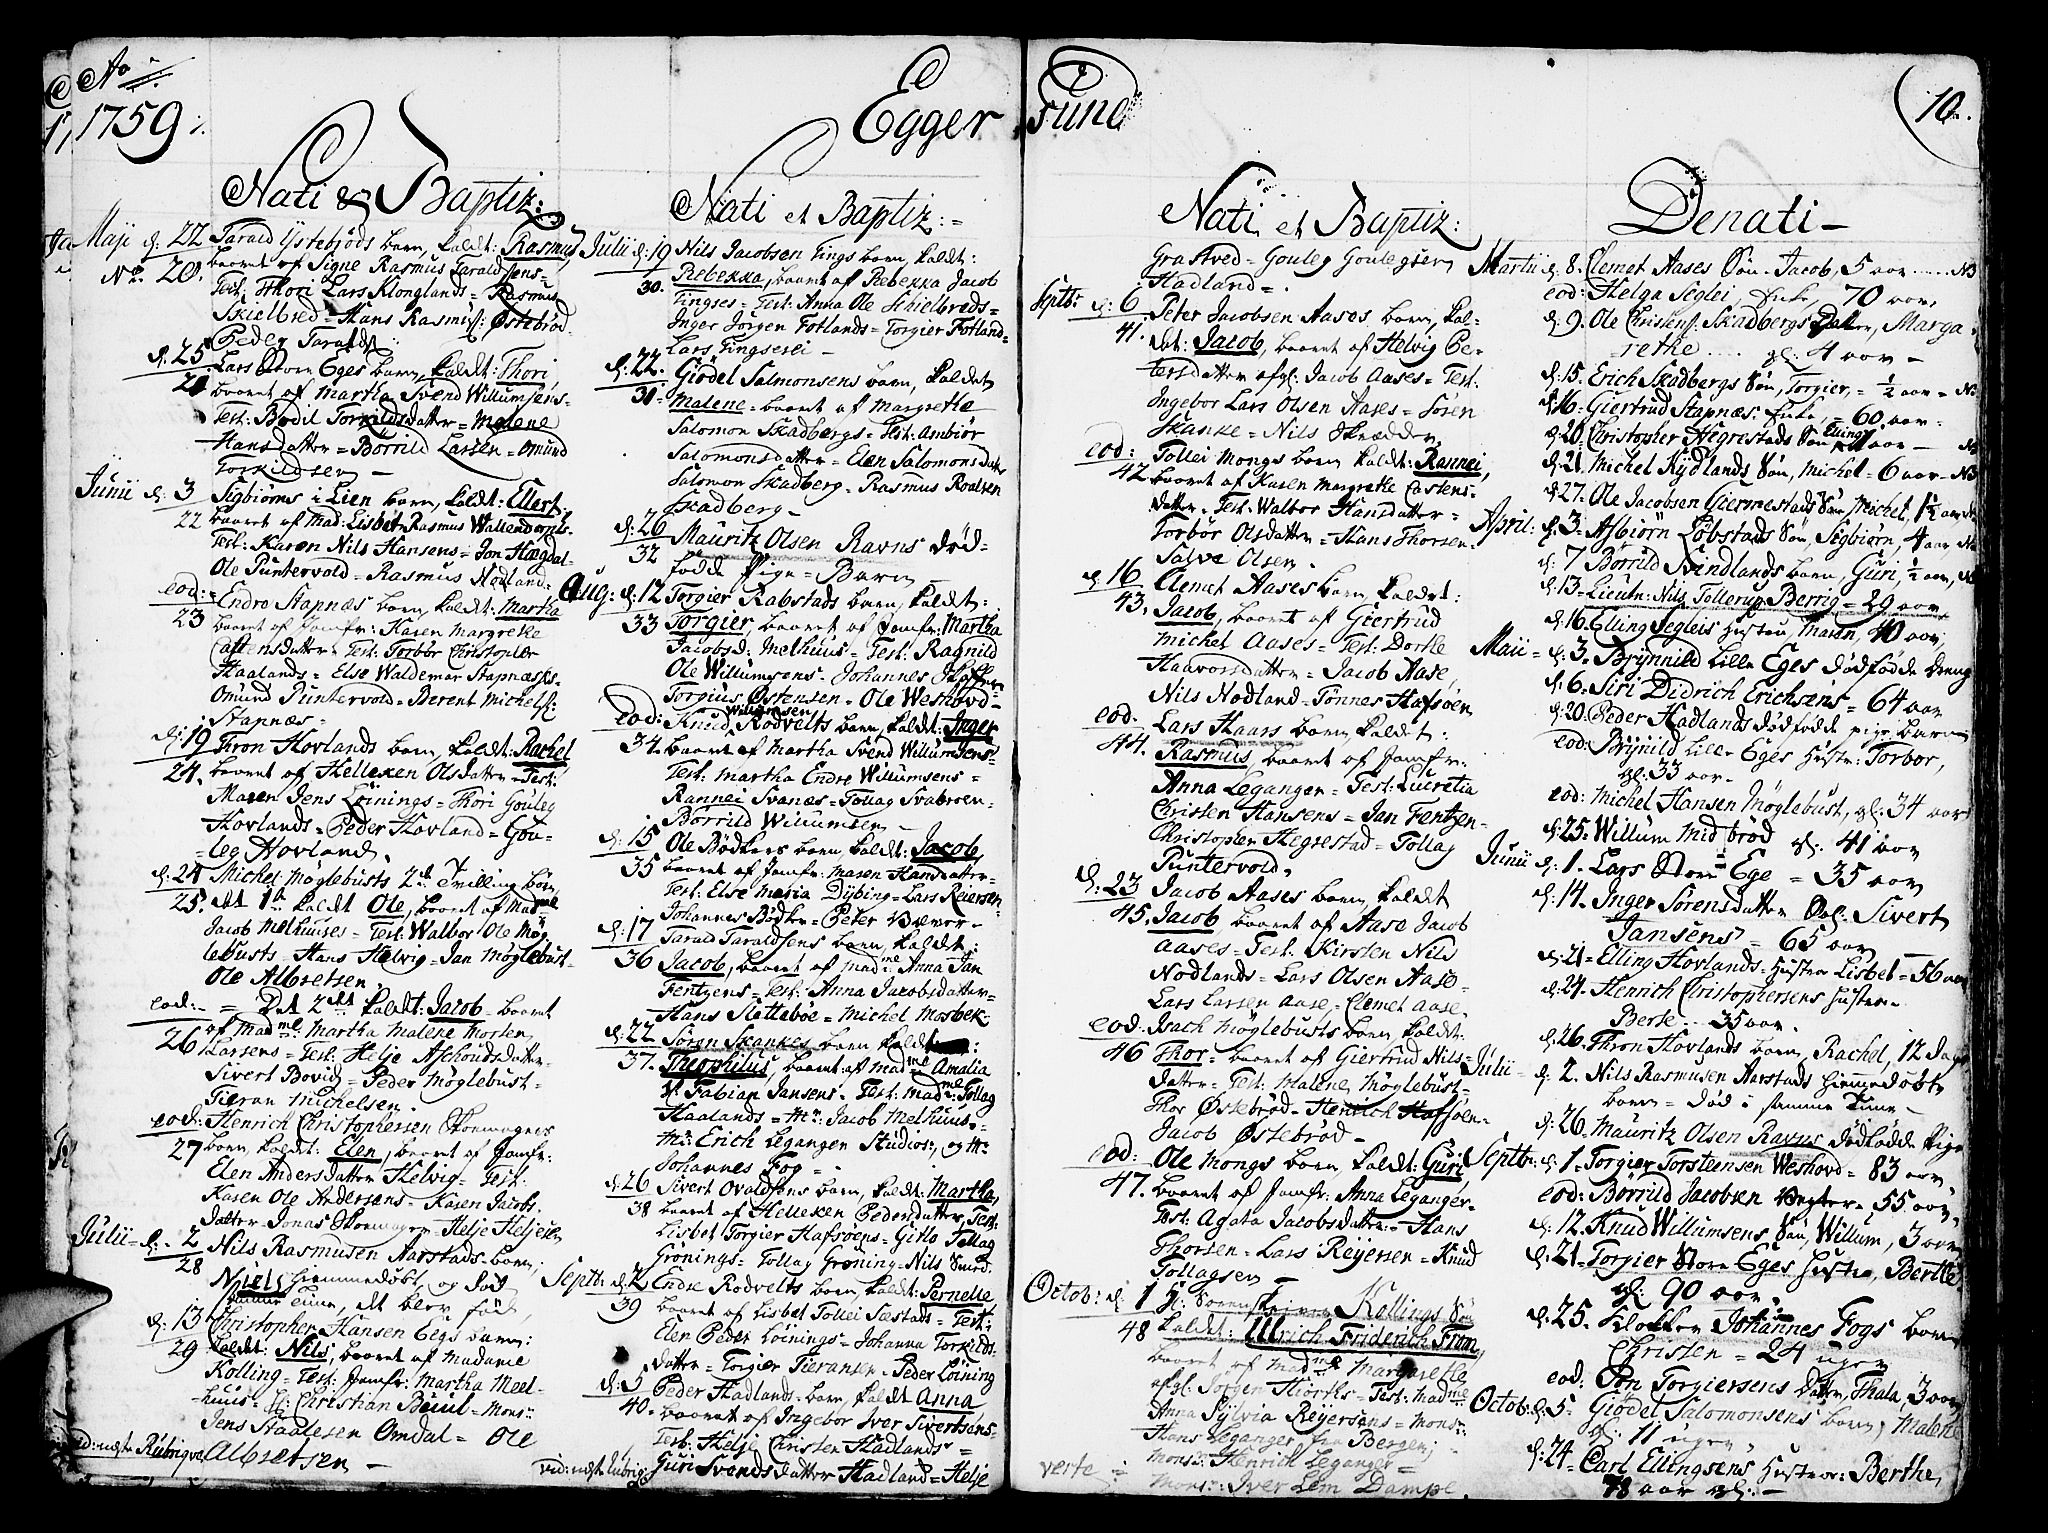 Ao
1759
Egger
sund
10.
Nati & Baptiz:
Maji d. 22 Tarald Ystebröds barn, kaldt: Rasmus,
No. 20. baaret af Signe Rasmus Taraldsens=
Test: Thori Lars Klonglands= Rasmus
Skielbred= Hans Rasmus: Östebröd
Peder Taralds:
d. 25 Lars Store Eges barn, kaldt: Thori
21 baaret af Martha Svend Willumsens=
Test: Bodil Torkildsdatter= Malene
Hansdatter= Börrild Larsen= Omund
Torkildsen
Junii d. 3 Sigbiörns i Lien barn, kaldt: Ellert,
22 baaret af Mad: Lisbet Rasmus Wallendorphs=
Test: Karen Nils Hansens= Jon Hægdal=
Ole Puntervold= Rasmus Nodland=
eod:= Endre Stapnæs barn, kaldt: Martha
23 baaret af Jomfr: Karen Margrethe
Castensdatter= Test: Torbör Christopher
Haalands= Else Waldemar Stapnæss=
Omund Puntervold= Berent Michels:
Stapnæs=
d. 19 Thron Hovlands barn, kaldt: Rachel
24. baaret af Helleken Olsdatter= Test:
Maren Jens Löinings= Thori Gouleg
Hovlands= Peder Hovland= Gou-
leg Hovland.
d. 24 Michel Möglebusts 2de Tvilling börn,
25. det 1te kaldt Ole, baaret af Madme
Jacob Melhuuses= Test: Walbor Ole Mög
lebusts= Hans Helvig= Jan Möglebust=
Ole Albretsen.
eod:= = Det 2det kaldt: Jacob= baaret
26 af Madme: Martha Malene Morten
Larsens= Test: Helje Ascouds datter=
Sivert Bovids= Peder Möglebust=
Tieran Michelsen.
eod: Henrich Christophersen Skomagers
27 barn, kaldt: Elen, baaret af Jomfr:
Elen Andersdatter Helvig= Test:
Karen Ole Andersens= Karen Jacobs
datter= Jonas Skomager= Helje Heljesen
Julii= d. 2 Nils Rasmusen Aarstads= barn,
28 Niels hiemmedöbt, og död
samme Time, det blev föd,
d. 13 Christopher Hansen Eegs barn:
29 kaldt: Nils, baaret af Madame
Kolling= Test: Jomfr: Martha Meel-
huus= Christian Buul= Mons:
Jens Stadlesen Omdal= Ole
vid: næste Rubriqve Albretsen=
Nati et Baptiz:=
Julii d. 19 Nils Jacobsen Tings barn kaldt:
30. Rebekka, baaret af Rebekka Jacob
Tingses= Test: Anna Ole Skielbreds=
Inger Jörgen Fotlands= Torgier Fotland=
Lars Tingserei=
d. 22. Giödel Salmonsens barn, kaldet
31= Malene= baaret af Margrethe
Salomon Skadbergs= Test: Ambiör
Salomonsdatter= Elen Salomonsdatter
Salomon Skadberg= Rasmus Roalsen
Skadberg=
d. 26 Mauritz Olsen Ravns död-
32 födde Pige= Barn
Aug: d. 12 Torgier Rabstads barn, kaldt:
33 Torgier, baaret af Jomfr: Martha
Jacobsd: Melhuus= Test: Ragnild
Ole Willumsens= Johannes
Torgius Östensen= Ole Weshovd=
eod: Knud Willumsen Rodvelts barn, kaldt: Inger
34. baaret af Martha Svend Willumsens=
Test: Martha Endre Willumsens=
Rannei Svanæs= Tollag Svabroen=
Börrild Willumsen=
d. 15 Ole Bödkers barn, kaldt: Jacob,
35 baaret af Jomfr: Maren Hansdatter=
Test: Else Maria Dybing= Lars Reiersen=
Johannes Bödker= Peter Brever=
d. 17 Tarald Taraldsens barn, kaldt:
36 Jacob, baaret af Madme: Anna Jan
Fentzens= Test: Anna Jacobsdatter=
Hans Sletteböe= Michel Mosbek
d. 22 Sören Skankes barn kaldt:
37. Theophilus, baaret af Madme Amalia
Fabian Jansens= Test: Madme: Tollag
Haalands= Mr: Jacob Melhuus=
Mr: Erich Legangen Studios:, og Mr
Johannes Fog=
d. 26 Sivert Ovaldsens barn, kaldt: Martha,
38 baaret af Helleken Pedersdatter, Test:
Lisbet Torgier Hafsöens= Girlo Tollag
Grönings= Tollag Gröning= Nils Smed.
Septbr: d. 2 Endre Rodvelts barn, kaldt: Pernelle
39 baaret af Lisbet Tollei Sæstads= Test:
Elen Peder Löinings= Johanna Torkilds
datter= Torgier Tieransen= Peder Löining
d. 5 Peder Hadlands= barn, kaldt Anna
40. baaret af Ingebor Iver Sivertsens=
Test: Helje Christen Hadlands=
vid: næste Rubriq: Guri Svends datter Hadland= Helje
Nati et Baptiz:
Grastved= Gouleg Goulegsen
Hadland=
Septbr: d. 6 Peter Jacobsen Aases barn, kal-
41. det: Jacob, baaret af Helvig Pe-
tersdatter afgl: Jacob Aases= Test:
Ingebor Lars Olsen Aases= Sören
Skanke= Nils Skrædder
eod: Tollei Mongs barn kaldt: Rannei,
42 baaret af Karen Margrethe Castens=
datter= Test: Walbor Hansdatter=
Torbör Olsdatter= Hans Thorsen=
Salve Olsen.
d. 16 Clemet Aases barn, kaldet:
43. Jacob, baaret af Giertrud
Michel Aases= Test: Dorthe
Haavorsdatter= Jacob Aase,
Nils Nodland= Tönnes Hafsöen
eod. Lars Haars barn, kaldt:
44. Rasmus, baaret af Jomfr:
Anna Leganger= Test: Lucretia
Christen Hansens= Jan Fentzen=
Christopher Hegrestad= Tollag
Puntervold.
d. 23 Jacob Aases barn, kaldt
45. Jacob, baaret af Aase Jacob
Aases= Test: Kirsten Nils
Nodlands= Lars Olsen Aase=
Lars Larsen Aase,= Clemet Aase=
eod: Isach Möglebusts barn, kaldt:
46 Thor= baaret af Giertrud Nils=
datter= Test: Malene Möglebust=
Thor Östebröd= Henrich Hafsöen=
Jacob Östebröd=
eod: Ole Mongs barn, kaldt: Guri,
47. baaret af Jomfr: Anna Leganger=
Test: Agata Jacobsdatter= Hans
Thorsen= Lars Reyersen= Knud
Tollagsen=
Octob: d. 1 Sorenskriver Kollings Sön
48 kaldt: Ulrich Friderich From,
baaret af Madme Margarethe
afgl: Jörgen Hiorths= Test: Madme
Anna Sylvia Reyersens= Mons:
Hans Leganger fra Bergen,
Mons: Henrich Leganger=
verte= Mons: Iver Lem Dampe.
Denati=
Martii d. 8. Clemet Aases Sön= Jacob, 5 aar
eod: Helga Seglei, Enke, 70 aar,
d. 9. Ole Christens: Skadbergs Datter, Marga
rethe gl: 4 aar=
d. 15. Erich Skadbergs Sön, Torgier,= ½ aar=
d. 16. Giertrud Stapnæs: Enke,= 60 aar:
d. 20. Christopher Hegrestads Sön Elling, 1 aar=
d. 21. Michel Kydlands Sön, Michel= 6 aar=
d. 27. Ole Jacobsen Giermestads Sön Michel, 1½ aar
April: d. 3. Asbiörn Löbstads Sön, Sigbiörn, 4 aar
d. 7 Börrild Svindlands barn, Guri, ½ aar,
d. 13. Lieutn: Nils Tollerup Berrig= 29 aar
d. 16. Elling Segleis Hustru, Maren, 40 aar,
Maii= d. 3. Brynnild Lille Eges dödfödde dreng
d. 6. Siri Didrich Erichsens= 64 aar
d. 20. Peder Hadlands dödfödde pige barn
eod: Brynild Lille Eges Hustr: Torbor,
gl: 33 aar.
eod: Michel Hansen Möglebust, gl: 34 aar
d. 25. Willum Midbröd gl: 41 aar
Junii d. 1. Lars Store Ege= 35 aar
d. 14. Inger Sörensdatter Sivert
Jansens= 65 aar
d. 21= Elling Hovlands= Hustru Lisbet= 56 aar
d. 24. Henrich Christophersens Hustru=
Berte 35 aar.
d. 26. Thron Hovlands barn, Rachel, 12 Dage
Julii= d. 2. Nils Rasmusen Aarstads hiemmedöbte
barn= död i samme Time=
d. 26. Mauritz Olsen Ravns dödfödde Pige
Septbr: d. 1= Torgier Torsteensen Weshovd= 83 aar,
eod: Börrild Jacobsen 55 aar,
d. 12. Knud Willumsens Sön, Willum, 3 aar,
d. 21= Torgier Store Eges Hustru, Berthe
gl: 90 aar,
d. 25. Klokker Johannes Fogs barn
Christen= 24 uger
eod: Torgiersens Datter, Thala, 3 aar
Octob: d. 5= Giödel Salomonsens barn, Malene
gl: 11 uger
d. 24= Carl Ellingsens Hustru: Berthe,
78 aar gl:=